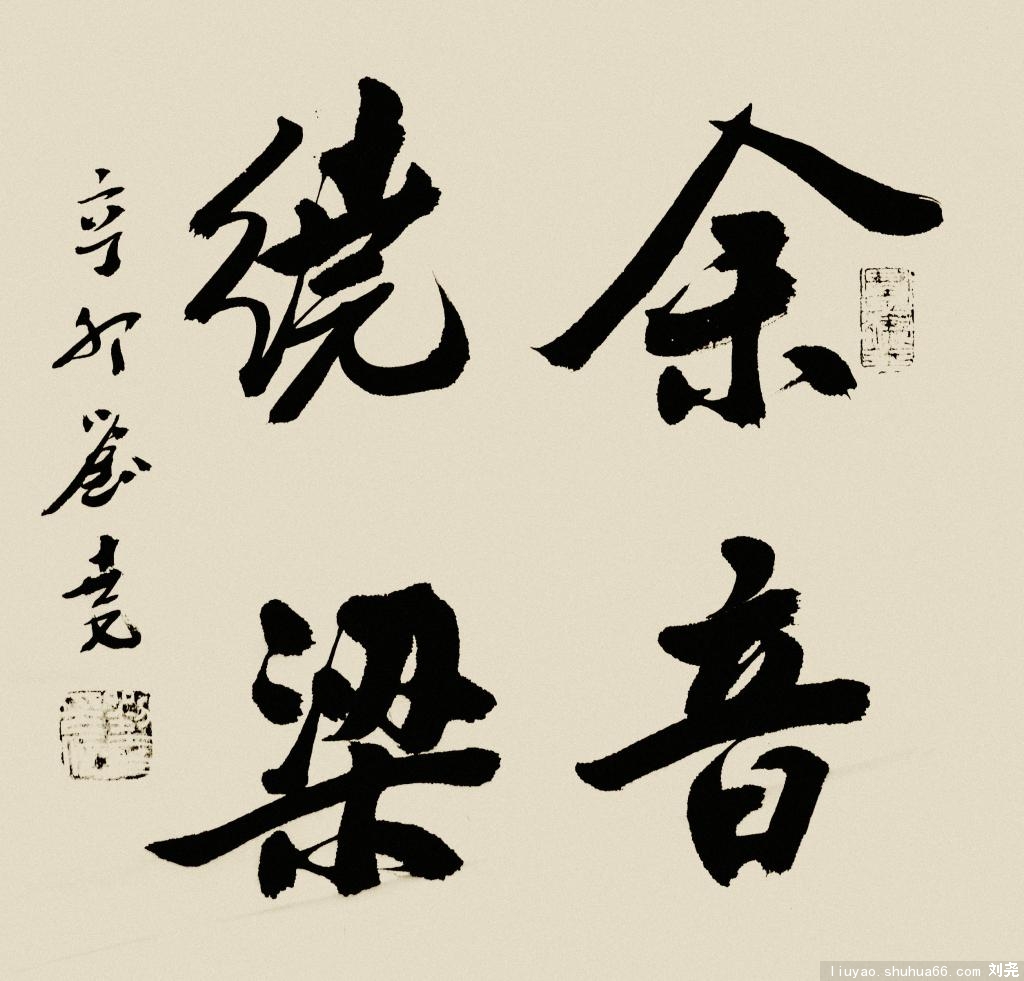 余音
繞梁
辛卯劉堯
liuyao.shuhua66.com 刘尧